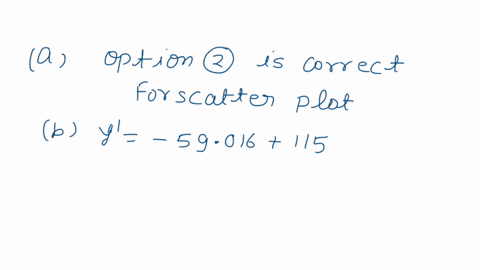 (a) option ② is correct
for scatter plot
(b) y' = - 59.016 + 115